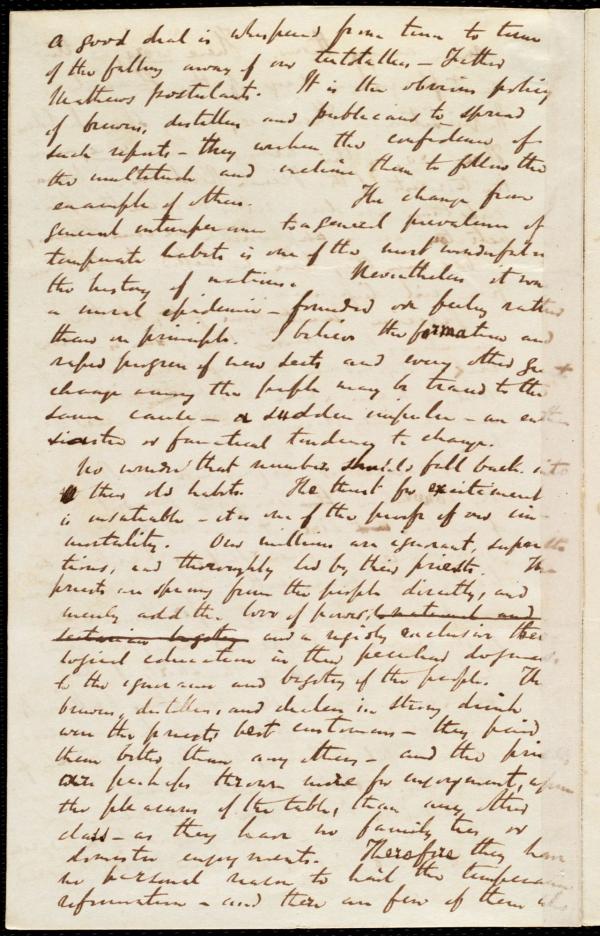 A good deal is whispered from time to time
of the falling away of our teetotallers – Father
Mathews postulants. It is the obvious policy
of brewers, distillers and publicans to spread
such reports – they weaken the confidence of
the multitude and incline them to follow the
example of others. The change from
general intemperance to a general prevalence of
temperate habits is one of the most wonderful in
the history of nations. Nevertheless it was
a moral epidemic – founded on feeling rather
than on principle. I believe the formation and
rapid progress of new sects and every other
change among the people may be traced to the
same cause – a sudden impulse – an en
siastic or fanatical tendency to change.
No wonder that numbers should fall back into
their old habits. The thirst for excitement
is insatiable – it is one of the proofs of our im-
mortality. Our millions are ignorant, supersti
tious, and thoroughly led by their priests. The
priests are sprung from the people directly, and
merely add the love of power, natural and
sectarian bigotry and a rigidly exclusive theo
logical education in their peculiar dogmas,
to the ignorance and bigotry of the people. The
brewers, distillers, and dealers in strong drink
were the priests best customers – they paid
them better than any others – and the priests
are perhaps thrown more for enjoyment, upon
the pleasures of the table, than any other
class – as they have no family ties or
domestic enjoyments. Therefore they have
no personal reason to hail the temperance
reformation – and there are few of them who